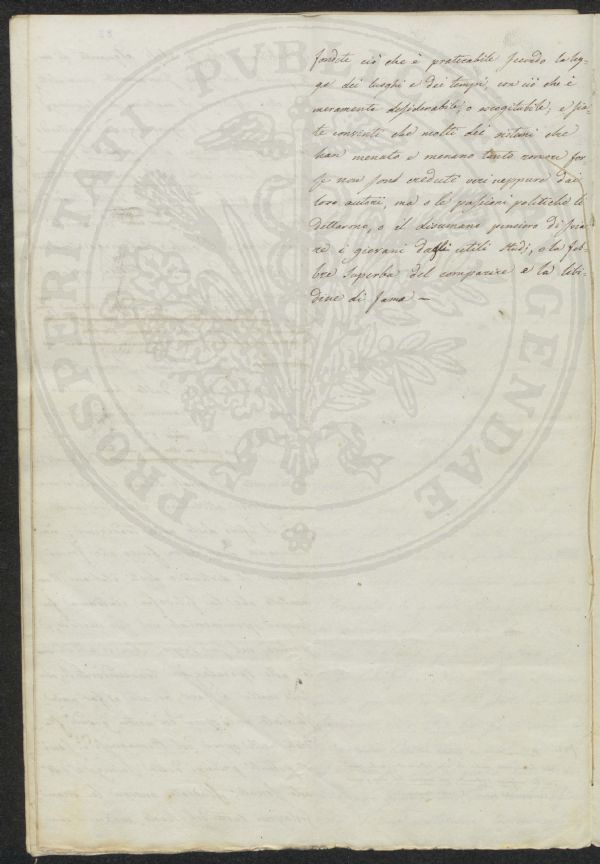 fondete ciò che è praticabile secondo la leg-
ge dei luoghi e dei tempi, con ciò che è
meramente desiderabile, o escogitabile, e sia-
te convinti che molti dei sistemi che
han menato e menano tanto romore for-
se non sono creduti veri neppure dai
loro autori, ma o le passioni politiche li
dettarono, o il disumano pensiero di svia-
re i giovani dagli utili studj, o la feb-
bre superba del comparire e la libi-
dine di fama —
PROSPERITATI PVBLICAE AVGENDAE